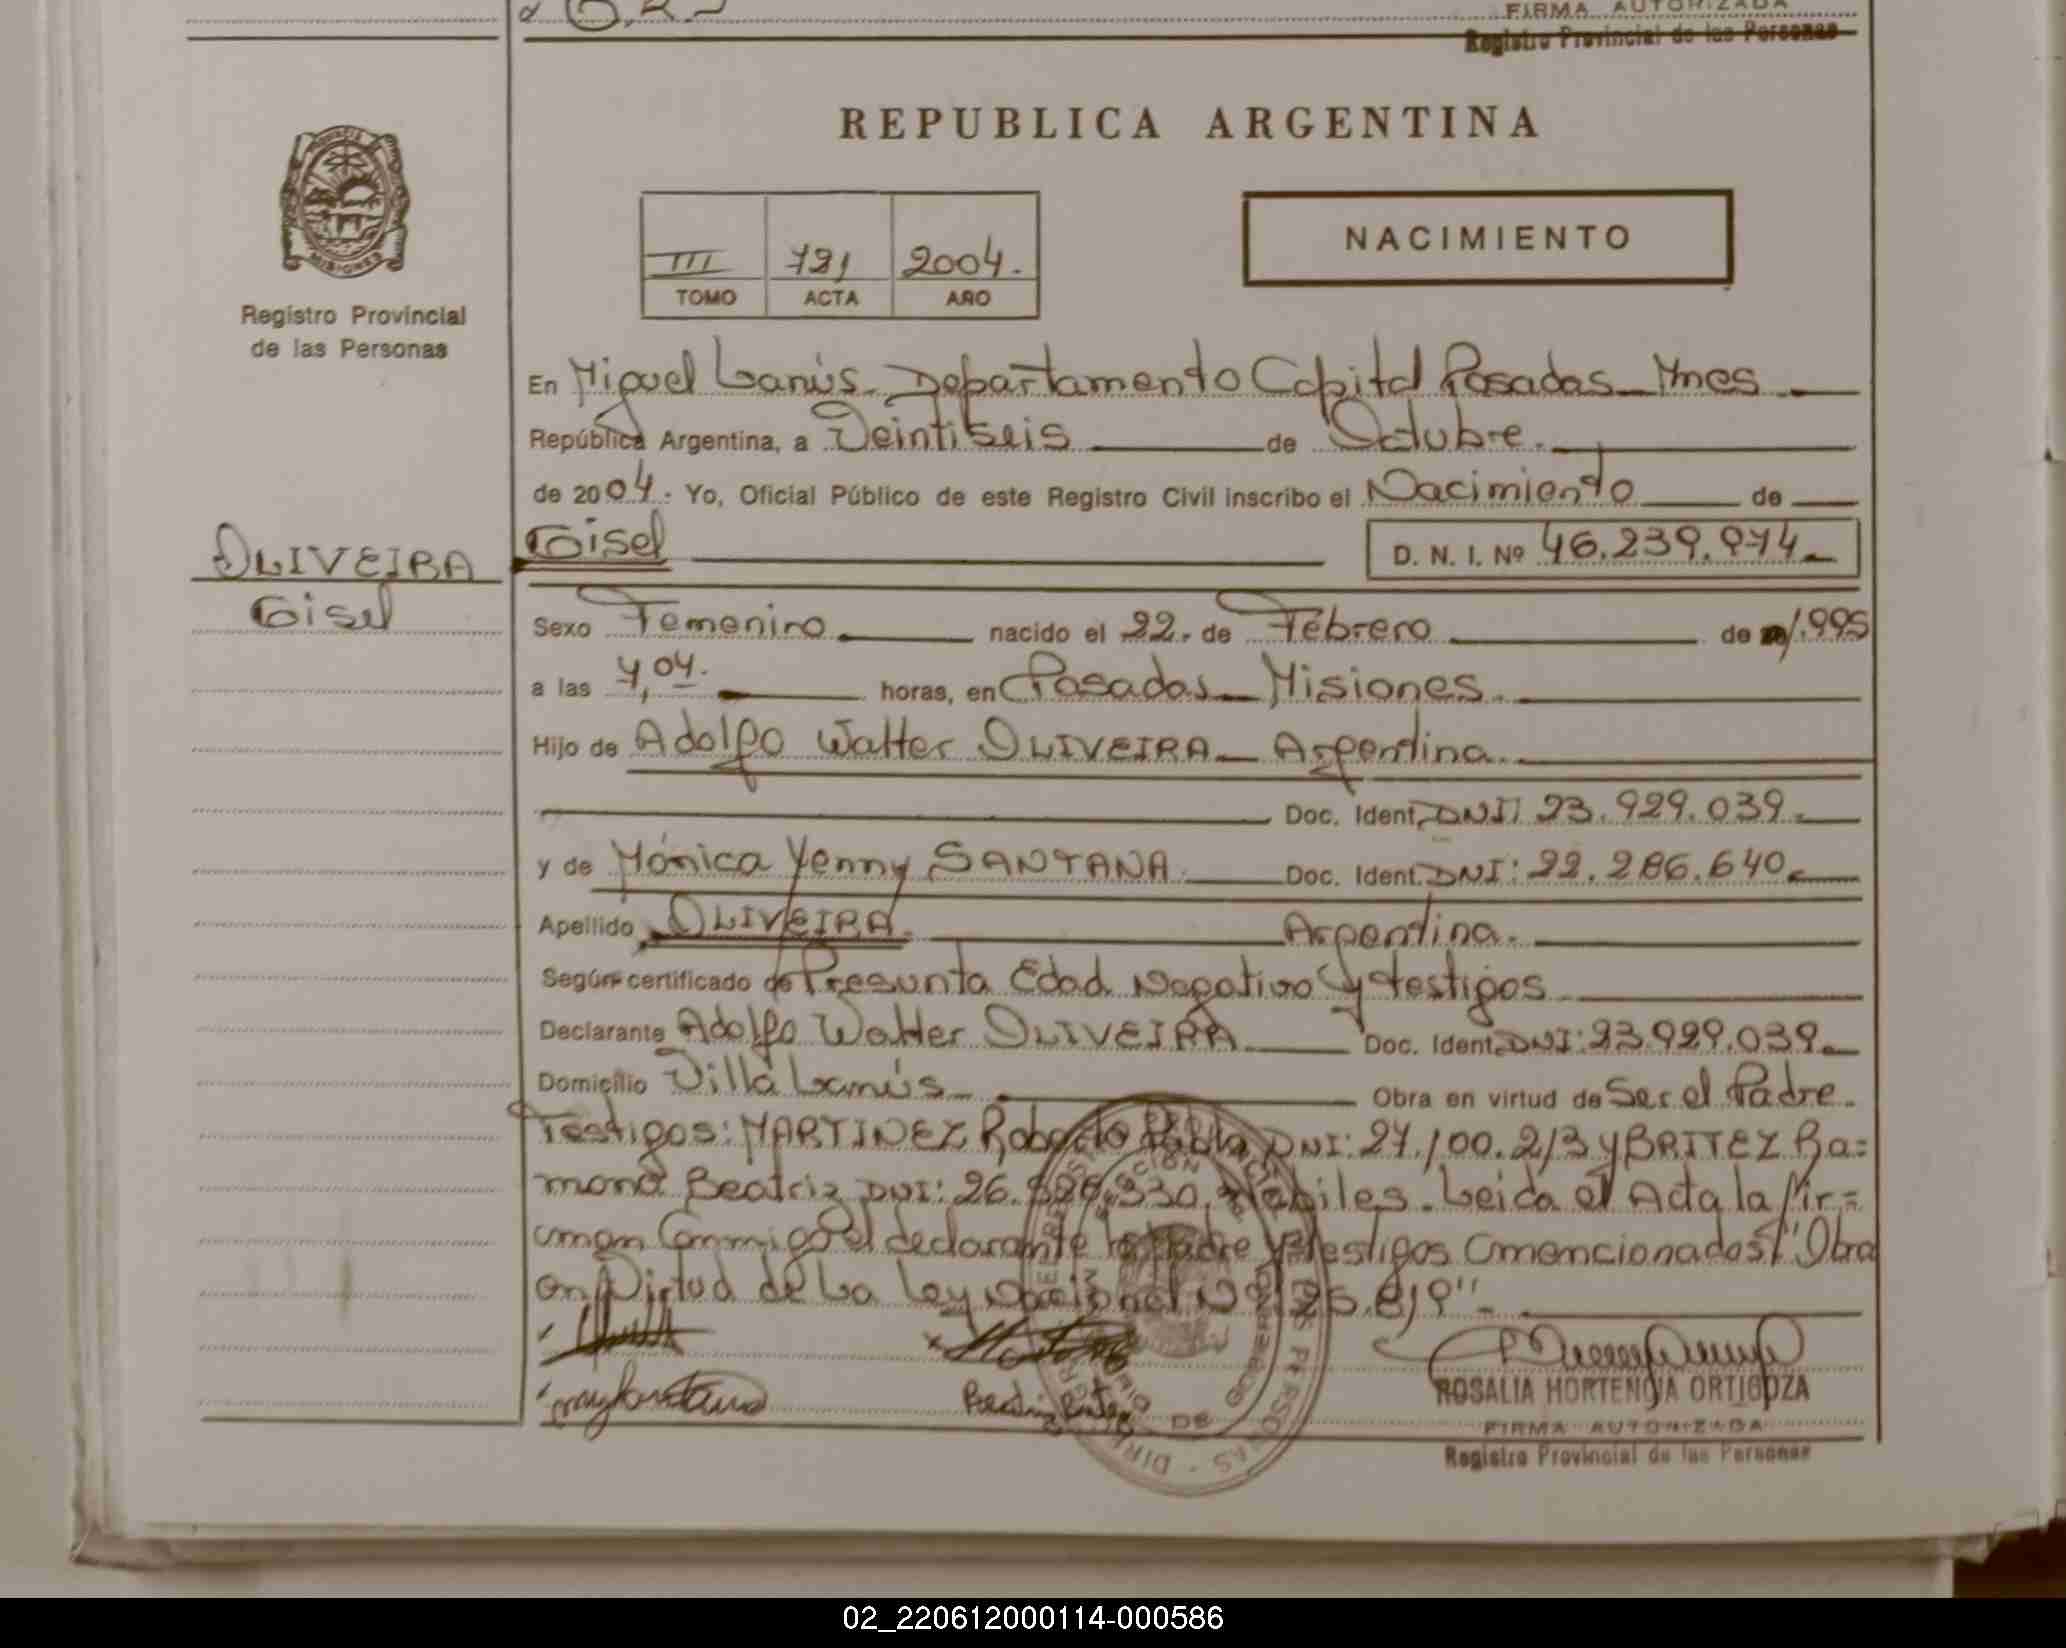 FIRMA AUTORIZADA
Registro Provincial de las Personas
REPUBLICA ARGENTINA
III 721 2004.
TOMO ACTA AÑO
NACIMIENTO
MISIONES
Registro Provincial
de las Personas
En Miguel Lanús_ Departamento Capital Posadas_ Mnes
República Argentina, a Veintiseis de Octubre.
de 2004. Yo, Oficial Público de este Registro Civil inscribo el Nacimiento de
OLIVEIRA
Gisel
Gisel
D. N. I. Nº 46.239.974_
Sexo Femenino nacido el 22. de Febrero de 1.995
a las 7,04. horas, en Posadas_ Misiones.
Hijo de Adolfo Walter OLIVEIRA_ Argentina.
Doc. Ident. DNI: 23.929.039._
y de Mónica Yenny SANTANA. Doc. Ident. DNI: 22.286.640._
Apellido OLIVEIRA. Argentina.
Según certificado de Presunta Edad Negativo y testigos
Declarante Adolfo Walter OLIVEIRA Doc. Ident. DNI: 23.929.039._
Domicilio Villa Lanús_ Obra en virtud de Ser el Padre.
Testigos: MARTINEZ Roberto DNI: 27.100.213 y BRITEZ Ra=
mona Beatriz DNI: 26. .330, Habiles. Leida el Acta la fir=
man Conmigo el declarante la Padre y testigos mencionados "Obra
en Virtud de La Ley Nacional Nº 25.819"._
ROSALIA HORTENCIA ORTIGOZA
FIRMA AUTORIZADA
Registro Provincial de las Personas
02_220612000114-000586